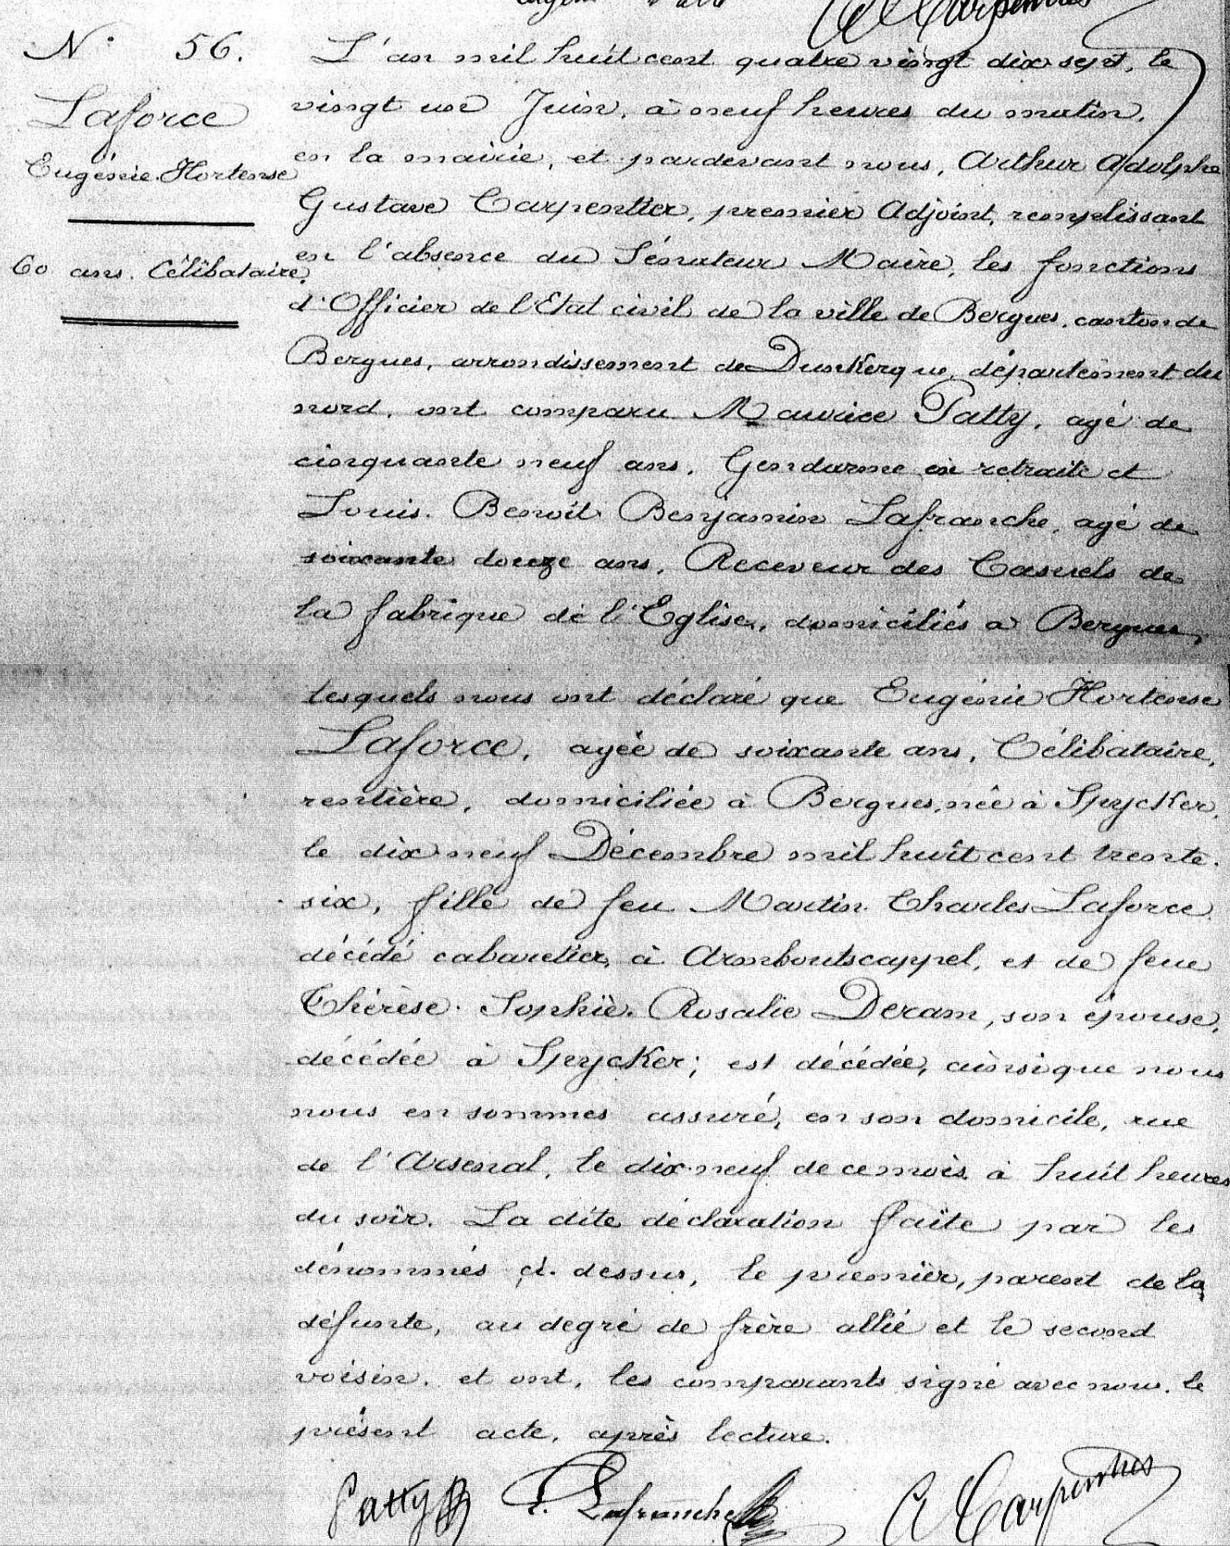 A Carpentier
N° 56.
Laforce
Eugénie Hortense
60 ans. Célibataire
L'an mil huit cent quatre vingt dix sept, le
vingt un Juin, à neuf heures du matin,
en la mairie, et pardevant nous, Arthur Adolphe
Gustave Carpentier, premier Adjoint, remplissant
en l'absence du Sénateur Maire, les fonctions
d'Officier de l'Etat civil de la ville de Bergues, canton de
Bergues, arrondissement de Dunkerque, département du
nord, ont comparu Maurice Patty, agé de
cinquante neuf ans, Gendarme en retraite et
Louis Benoit Benjamin Lafranche, agé de
soixante douze ans, Receveur des Casuels de
la fabrique de l'Eglise, domiciliés à Bergues,
lesquels nous ont déclaré que Eugénie Hortense
Laforce, agée de soixante ans, Célibataire,
rentière, domiciliée à Bergues, née à Spycker,
le dix neuf Décembre mil huit cent trente
six, fille de feu Martin Charles Laforce
décédé cabaretier, à Armboutscappel, et de feue
Thérèse Sophie Rosalie Deram, son épouse,
décédée à Spycker; est décédée, ainsi que nous
nous en sommes assuré, en son domicile, rue
de l'Arsenal, le dix-neuf de ce mois à huit heures
du soir. La dite déclaration faite par les
dénommés ci-dessus, le premier, parent de la
défunte, au degré de frère allié et le second
voisin, et ont, les comparants signé avec nous, le
présent acte, après lecture.
Patty L. Lafranche A Carpentier